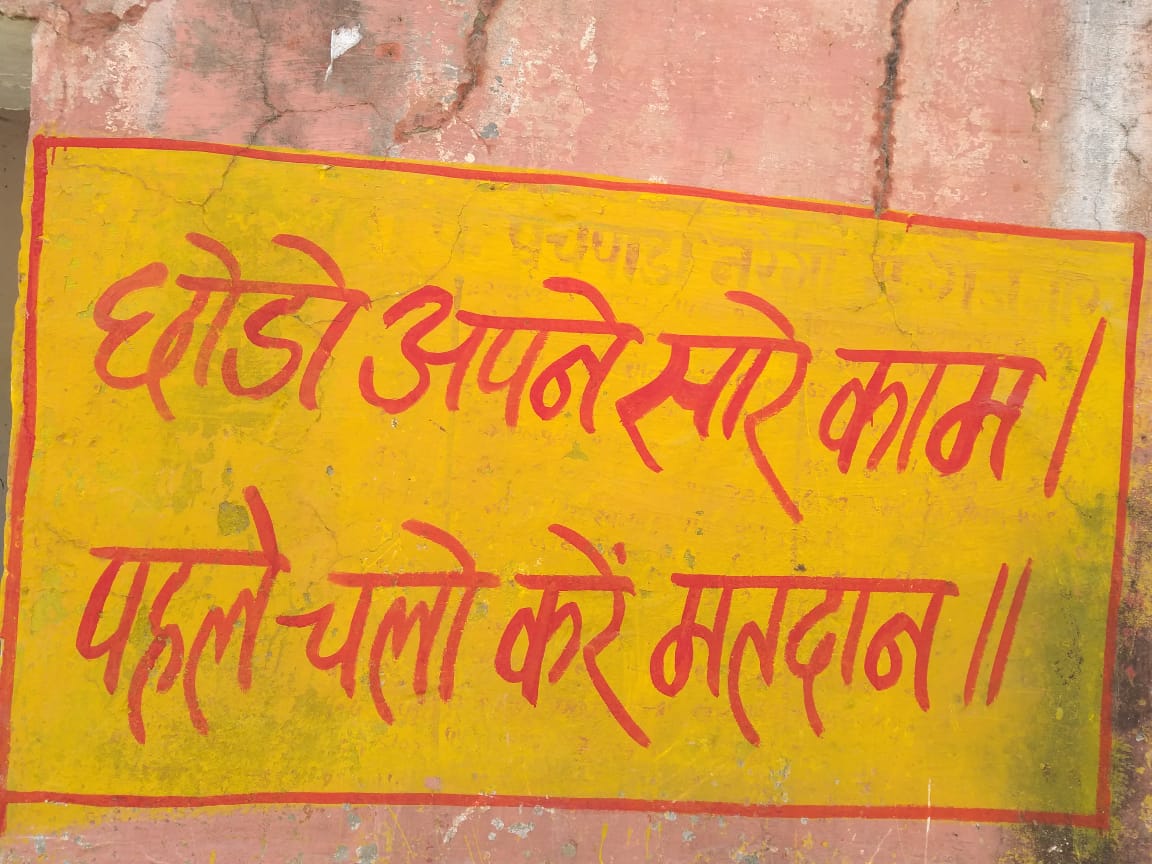 छोडो अपने सारे काम।
पहले चलो करें मतदान॥